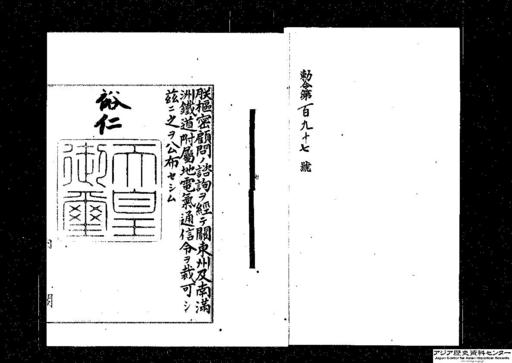 勅令第百九十七號
朕樞密顧問ノ諮詢ヲ経テ關東州及南滿
洲鐵道附屬地電氣通信令ヲ裁可シ
茲ニ之ヲ公布セシム
裕仁
天皇
御璽
内閣
アジア歴史資料センター
Japan Center for Asian Historical Records